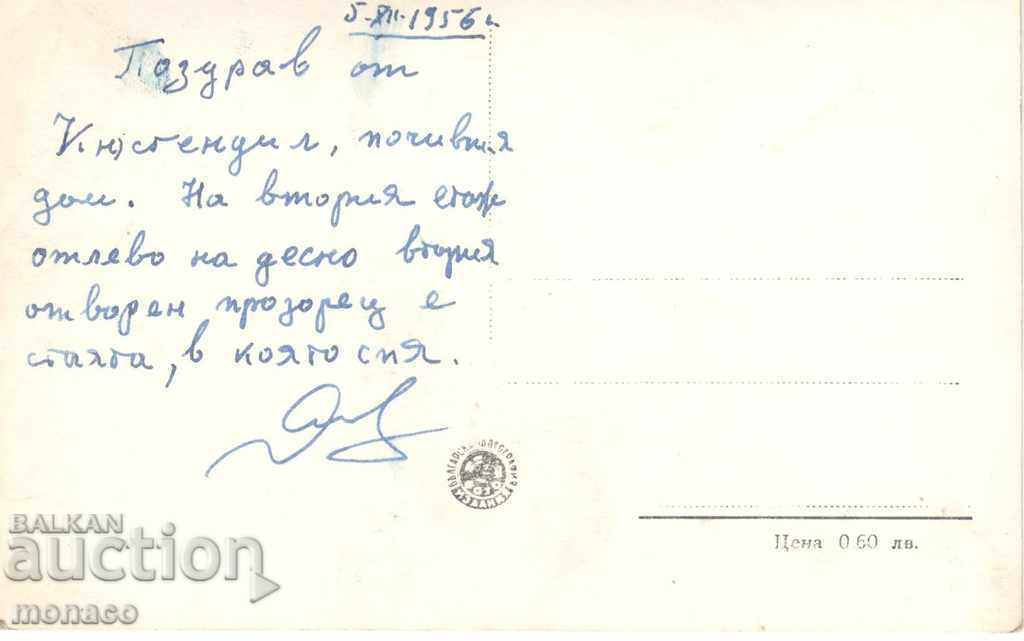 5-XII-1956 г.
Поздрав от
Кюстендил, почивния
дом. На втория етаж
отлево на десно втория
отворен прозорец е
стаята, в която спя.
Цена 0 60 лв.
BALKAN
auction
monaco